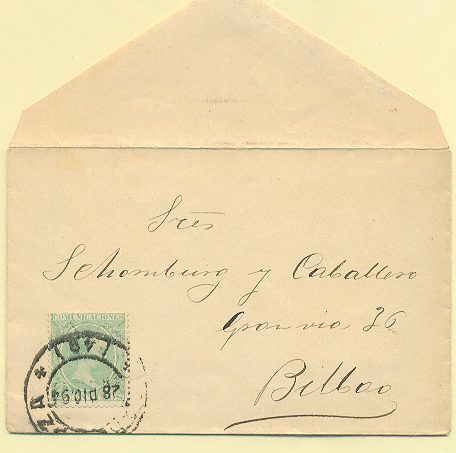 Sres
Schomburg y Caballero
Gran via 36
Bilbao
COMUNICACIONES
28 DIC 94